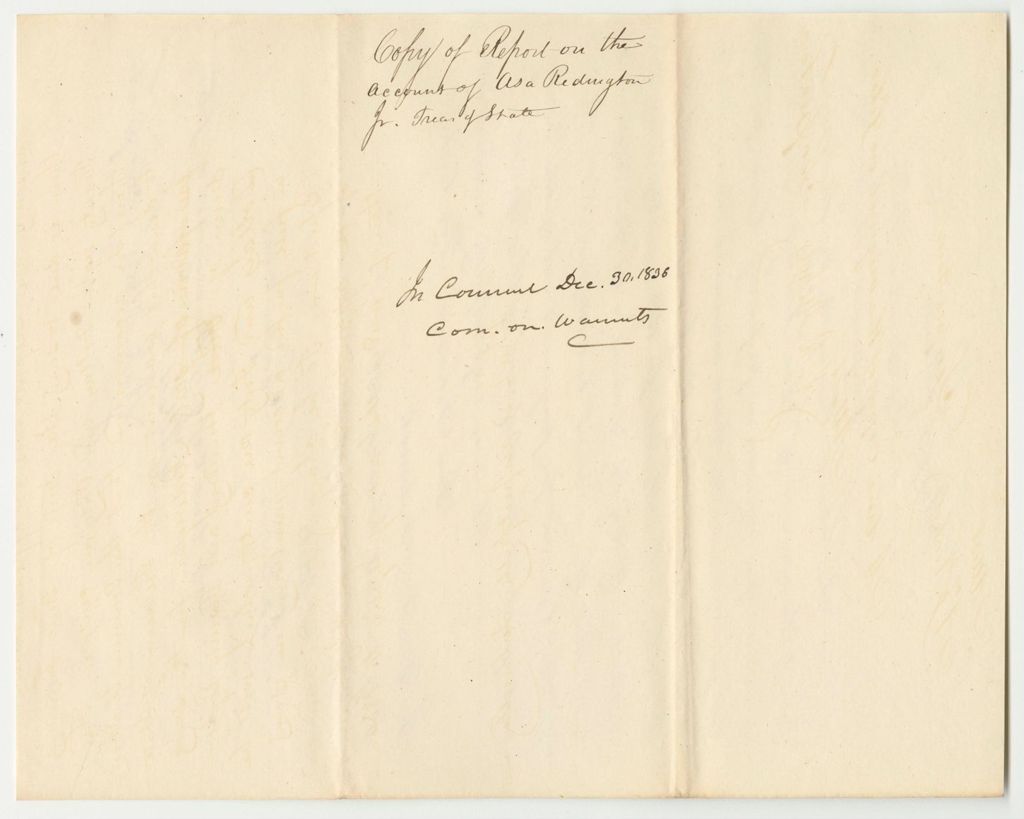 Copy of Report on the
account of Asa Redington
Jr. Treas of State
In Council Dec. 30, 1836
Com. on. Warrants